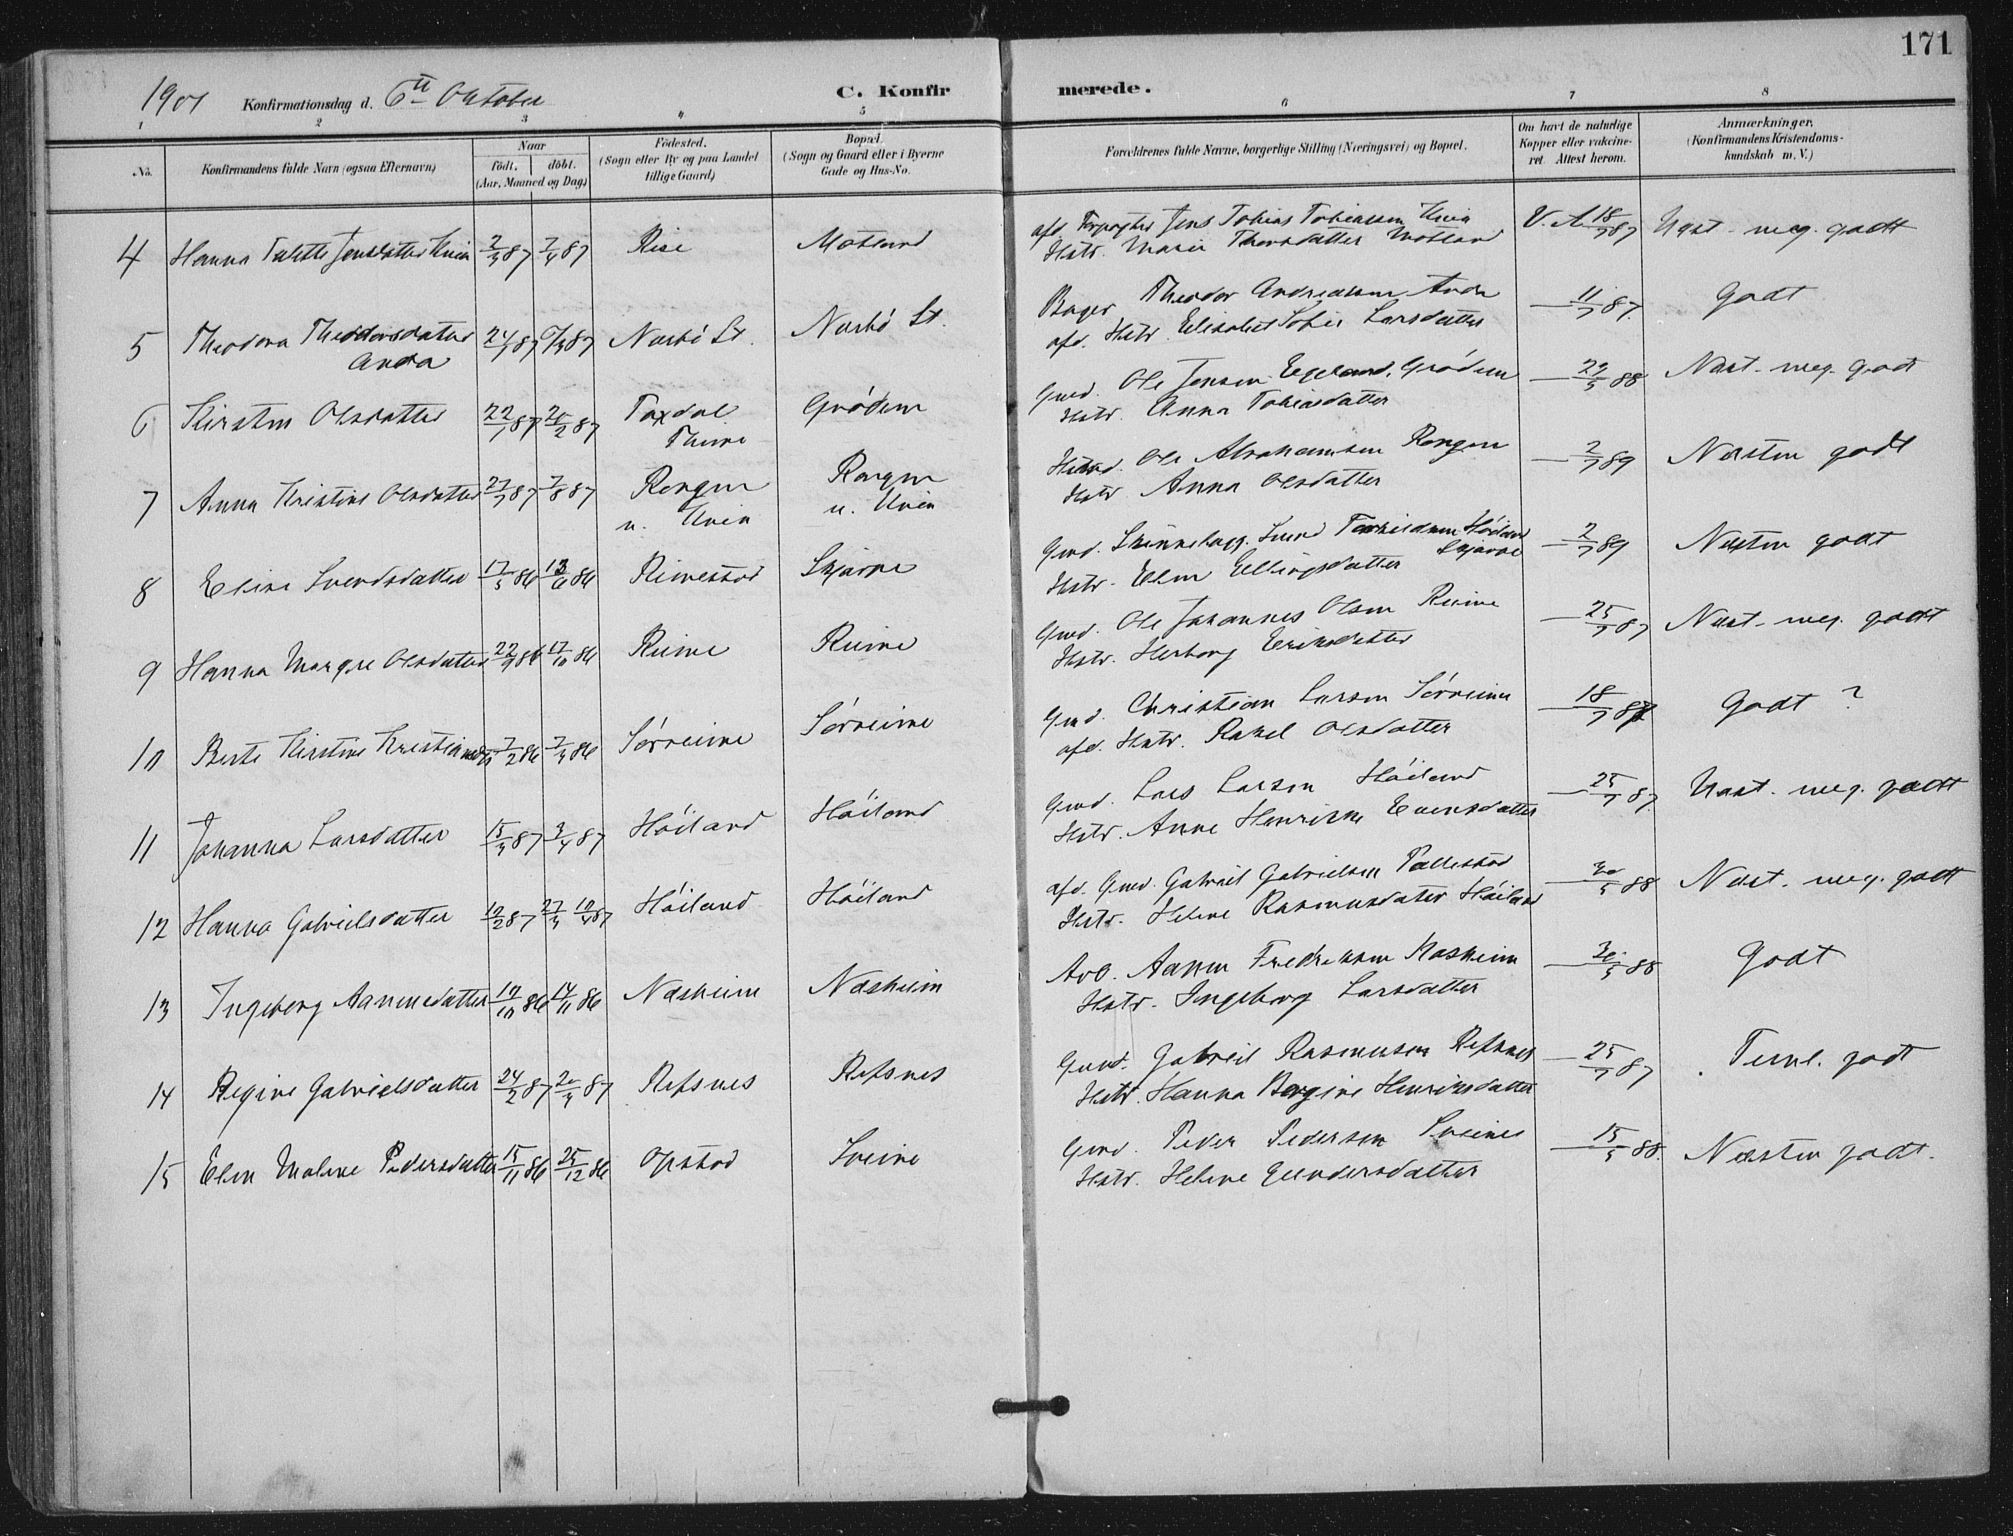 171
1901 Konfirmationsdag d. 6te Oktober C. Konfirmerede.
1 2 3 4 5 6 7 8
No. Konfirmandens fulde Navn (ogsaa Efternavn) Naar født. døbt. (Aar, Maaned og Dag) Fødested. (Sogn eller By og paa Landet tillige Gaard) Bopæl. (Sogn og Gaard eller i Byerne Gade og Hus-No. Forældrenes fulde Navne, borgerlige Stilling (Næringsvei) og Bopæl. Om havt de naturlige Kopper eller vakcineret. Attest herom. Anmærkninger. (Konfirmandens Kristendomskundskab m. V.)
4 Hanna Talette Jensdatter Kvia 2/3 87 7/4 87 Rise Motland afd. Forpagter Jens Tobias Tobiassen Kvia V. A. 18/7 87 Næst. meg. godt
Hstr. Marie Thorsdatter Motland
5 Theodora Theodorsdatter 24/1 87 6/3 87 Nærbø St. Nærbø St. Bager Theodor Andreassen Anda — 11/7 87. Godt
Anda afd. Hstr. Elisabet Sofie Larsdatter
6 Kirstin Olsdatter 22/1 87 20/2 87 Taxdal Grødem Gmd. Ole Jensen Egeland, Grødem — 29/5 88 Næst. meg. godt
Thime Hstr. Anna Tobiasdatter
7 Anna Kristine Olsdatter 27/7 87 7/8 87 Rongen Rongen Husmd. Ole Abrahamsen Rongen — 2/7 89 Næsten godt
u. Kvia u. Kvia Hstr. Anna Olsdatter
8 Eline Svendsdatter 17/5 86 13/6 86 Rimestad Skjærpe Gmd. Svend Høiland — 2/7 89 Næsten godt
Skjærpe
Hstr. Elen Ellingsdatter
9 Hanna Margre Olsdatter 22/9 86 17/10 86 Reime Reime Gmd. Ole Johannes Olsen Reime — 25/7 87 Næst. meg. godt
Hstr. Herborg Eriksdatter
10 Berte Kirstine 7/2 86 7/3 86 Sørreime Sørreime Gmd. Christian Larsen Sørreime — 18/7 87 Godt ?
afd. Hstr. Rakel Olsdatter
11 Johanna Larsdatter 15/3 87 3/4 87 Høiland Høiland Gmd. Lars Larsen Høiland — 25/7 87. Næst. meg. godt
Hstr. Anne Henrikke Evensdatter
12 Hanna Gabrielsdatter 10/2 87 27/3 10/4 87 Høiland Høiland afd. Gmd. Gabriel Gabrielsen Pallestad — 30/5 88 Næst. meg. godt
Hstr. Helene Rasmusdatter Høiland
13 Ingeborg Aanensdatter 10/10 86 14/11 86 Næsheim Næsheim Arb. Aanen Fredriksen Næsheim — 30/5 88 Godt
Hstr. Ingeborg Larsdatter
14 Regine Gabrielsdatter 24/2 87 20/3 87 Refsnes Refsnes Gmd. Gabriel Rasmusen Refsnes — 25/7 87 Teml. godt
Hstr. Hanna Bergine Henriksdatter
15 Elen Malene Pedersdatter 15/11 86 25/12 86 Opstad Sreime Gmd. Peder Pedersen Sreime — 15/5 88. Næsten godt.
Hstr. Helene Gundersdatter